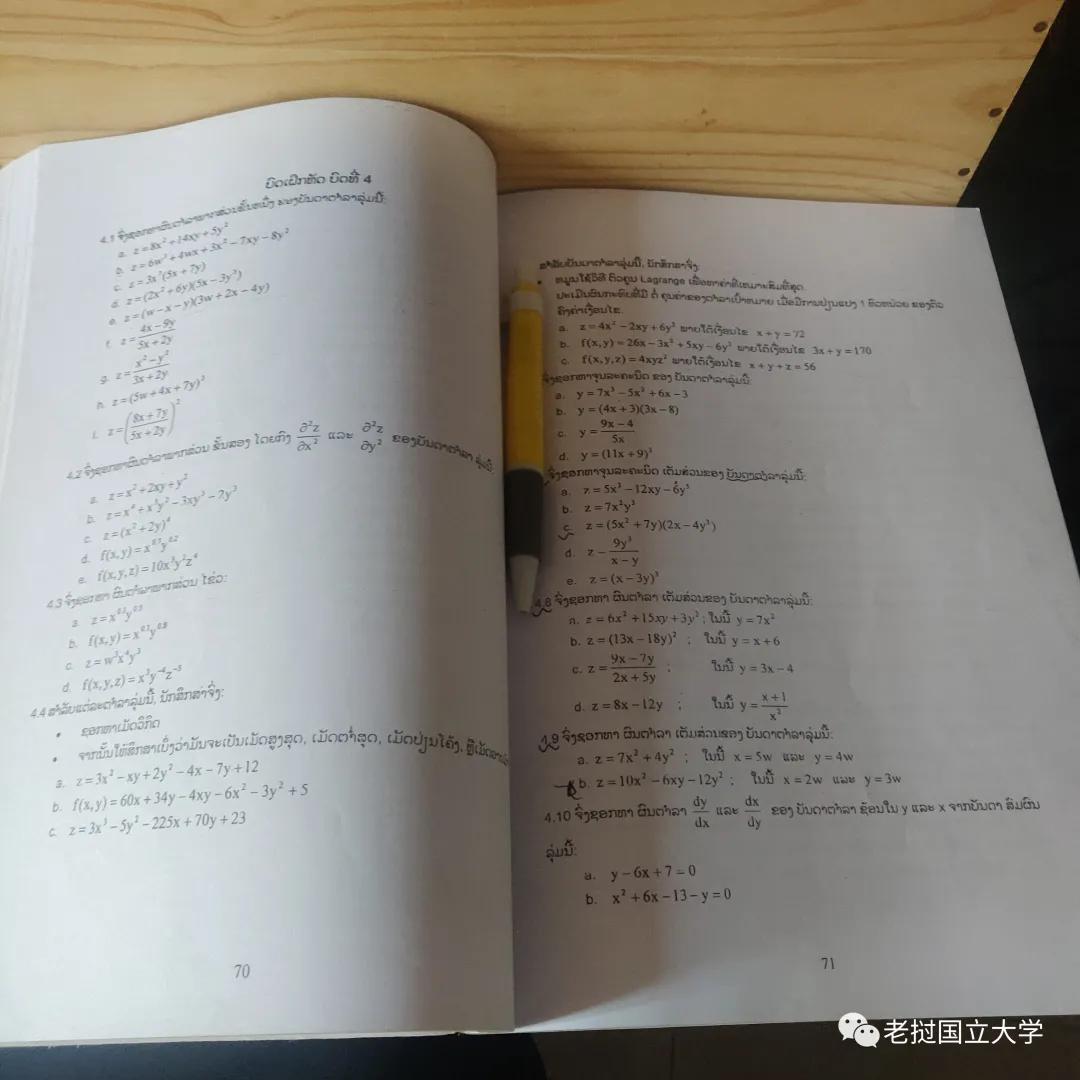 ບົດເຝິກຫັດ ບົດທີ່ 4
4.1 ຈົ່ງຊອກຫາຜົນຕຳລາພາກສ່ວນຂັ້ນຫນຶ່ງ ຂອງບັນດາຕຳລາລຸ່ມນີ້:
a. z=8x²+14xy+5y²
b. z=6w³+4wx+3x²−7xy−8y²
c. z=3x²(5x+7y)
d. z=(2x²+6y)(5x−3y³)
e. z=(w−x−y)(3w+2x−4y)
f. z=(4x−9y)/(5x+2y)
g. z=(x²−y²)/(3x+2y)
h. z=(5w+4x+7y)³
i. z=((8x+7y)/(5x+2y))²
4.2 ຈົ່ງຊອກຫາຜົນຕຳລາພາກສ່ວນ ຂັ້ນສອງ ໂດຍກົງ ∂²z/∂x² ແລະ ∂²z/∂y² ຂອງບັນດາຕຳລາ ລຸ່ມນີ້:
a. z=x²+2xy+y²
b. z=x⁴+x³y²−3xy³−2y³
c. z=(x²+2y)⁴
d. f(x,y)=x^0.5 y^0.2
e. f(x,y,z)=10x³y²z⁴
4.3 ຈົ່ງຊອກຫາ ຜົນຕຳລາພາກສ່ວນ ໄຂ່ວ:
a. z=x^0.3 y^0.5
b. f(x,y)=x^0.1 y^0.8
c. z=w³x⁴y³
d. f(x,y,z)=x³y⁻⁴z⁻⁵
4.4 ສຳລັບແຕ່ລະຕຳລາລຸ່ມນີ້, ນັກສຶກສາຈົ່ງ:
• ຊອກຫາເມັດວິກິດ
• ຈາກນັ້ນໃຫ້ສຶກສາເບິ່ງວ່າມັນຈະເປັນເມັດສູງສຸດ, ເມັດຕ່ຳສຸດ, ເມັດປ່ຽນໂຄ້ງ,
a. z=3x²−xy+2y²−4x−7y+12
b. f(x,y)=60x+34y−4xy−6x²−3y²+5
c. z=3x³−5y²−225x+70y+23
70
ສຳລັບບັນດາຕຳລາລຸ່ມນີ້, ນັກສຶກສາຈົ່ງ:
• ຫມູນໃຊ້ວິທີ ຕົວຄູນ Lagrange ເພື່ອຫາຄ່າທີ່ເຫມາະສົມທີ່ສຸດ.
ປະເມີນຜົນກະທົບທີ່ມີ ຕໍ່ ຄຸນຄ່າຂອງຕຳລາເປົ້າຫມາຍ ເມື່ອມີການປ່ຽນແປງ 1 ຫົວຫນ່ວຍ ຂອງຕົວ
ຄົງຄ່າເງື່ອນໄຂ.
a. z=4x²−2xy+6y² ພາຍໃຕ້ເງື່ອນໄຂ x+y=72
b. f(x,y)=26x−3x²+5xy−6y² ພາຍໃຕ້ເງື່ອນໄຂ 3x+y=170
c. f(x,y,z)=4xyz² ພາຍໃຕ້ເງື່ອນໄຂ x+y+z=56
ຈົ່ງຊອກຫາຈຸນລະຄະນິດ ຂອງ ບັນດາຕຳລາລຸ່ມນີ້:
a. y=7x³−5x²+6x−3
b. y=(4x+3)(3x−8)
c. y=(9x−4)/5x
d. y=(11x+9)³
ຈົ່ງຊອກຫາຈຸນລະຄະນິດ ເຕັມສ່ວນຂອງ ບັນດາຕຳລາລຸ່ມນີ້:
a. z=5x³−12xy−6y⁵
b. z=7x²y³
c. z=(5x²+7y)(2x−4y³)
d. z−9y³/(x−y)
e. z=(x−3y)³
4.8 ຈົ່ງຊອກຫາ ຜົນຕຳລາ ເຕັມສ່ວນຂອງ ບັນດາຕຳລາລຸ່ມນີ້:
a. z=6x²+15xy+3y² ; ໃນນີ້ y=7x²
b. z=(13x−18y)² ; ໃນນີ້ y=x+6
c. z=(9x−7y)/(2x+5y) ; ໃນນີ້ y=3x−4
d. z=8x−12y ; ໃນນີ້ y=(x+1)/x²
4.9 ຈົ່ງຊອກຫາ ຜົນຕຳລາ ເຕັມສ່ວນຂອງ ບັນດາຕຳລາລຸ່ມນີ້:
a. z=7x²+4y² ; ໃນນີ້ x=5w ແລະ y=4w
b. z=10x²−6xy−12y² ; ໃນນີ້ x=2w ແລະ y=3w
4.10 ຈົ່ງຊອກຫາ ຜົນຕຳລາ dy/dx ແລະ dx/dy ຂອງ ບັນດາຕຳລາ ຊ້ອນໃນ y ແລະ x ຈາກບັນດາ ສົມຜົນ
ລຸ່ມນີ້:
a. y−6x+7=0
b. x²+6x−13−y=0
71
老挝国立大学